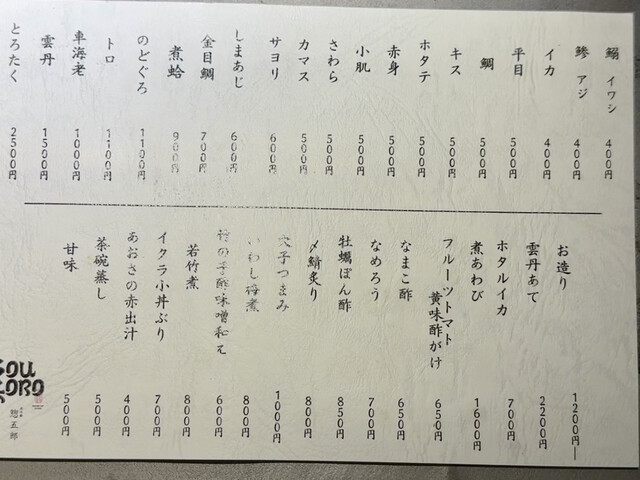 鰯 イワシ 400円
鯵 アジ 400円
イカ 400円
平目 500円
鯛 500円
キス 500円
ホタテ 500円
赤身 500円
小肌 500円
さわら 500円
カマス 500円
サヨリ 600円
しまあじ 600円
金目鯛 700円
煮蛤 900円
のどぐろ 1100円
トロ 1100円
車海老 1000円
雲丹 1500円
とろたく 2500円
お造り 1200円―
雲丹あて 2200円
ホタルイカ 700円
煮あわび 1600円
フルーツトマト
黄味酢がけ 650円
なまこ酢 650円
なめろう 700円
牡蠣ぽん酢 850円
〆鯖炙り 800円
穴子つまみ 1000円
いわし梅煮 800円
酢味噌和え 600円
若竹煮 800円
イクラ小丼ぶり 700円
あおさの赤出汁 400円
茶碗蒸し 500円
甘味 500円
SOU
GORO
惣五郎